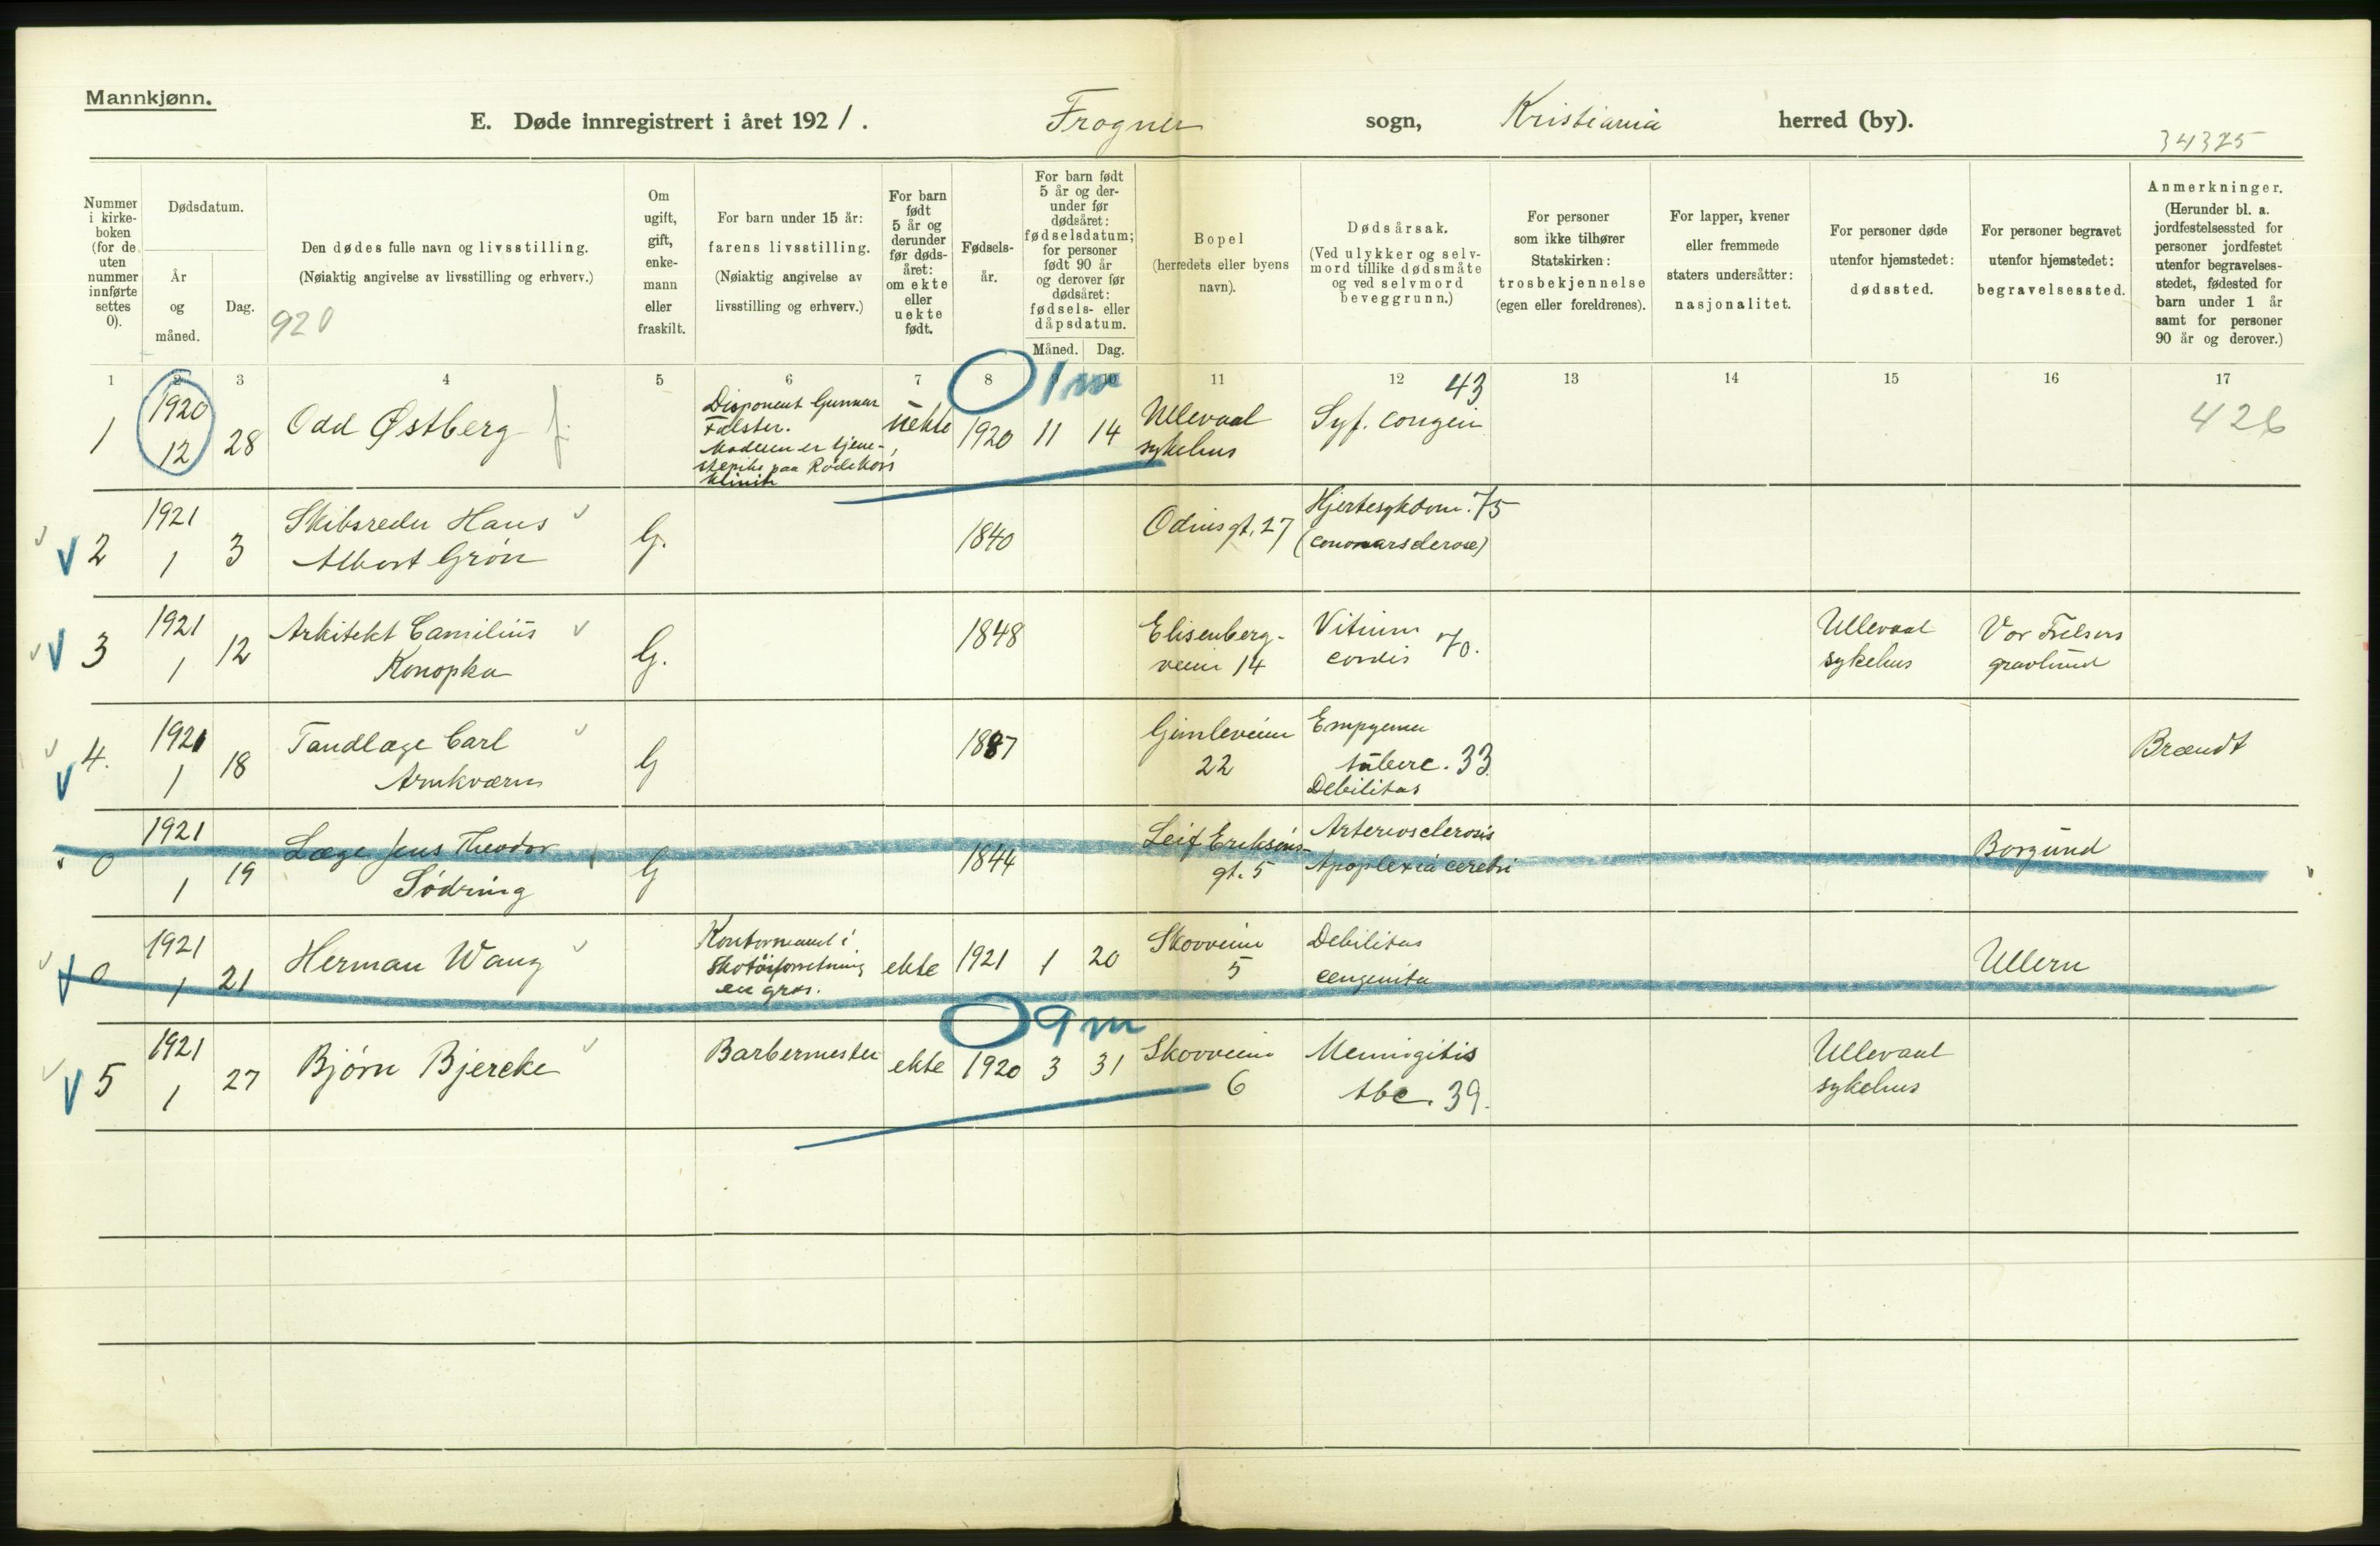 Mannkjønn.
E. Døde innregistrert i året 1921. Frogner sogn, Kristiania herred (by).
34325
Nummer i kirkeboken (for de uten nummer innførte settes 0).
Dødsdatum.
År og måned.
Dag.
Den dødes fulle navn og livsstilling.
(Nøiaktig angivelse av livsstilling og erhverv.)
920
Om ugift, gift, enkemann eller fraskilt.
For barn under 15 år:
farens livsstilling.
(Nøiaktig angivelse av livsstilling og erhverv.)
For barn født 5 år og derunder før dødsåret: om ekte eller uekte født.
Fødselsår.
For barn født 5 år og derunder før dødsåret: fødselsdatum; for personer født 90 år og derover før dødsåret: fødsels- eller dåpsdatum.
Måned. Dag.
Bopel
(herredets eller byens navn).
Dødsårsak.
(Ved ulykker og selvmord tillike dødsmåte og ved selvmord beveggrunn.)
For personer som ikke tilhører Statskirken:
trosbekjennelse
(egen eller foreldrenes).
For lapper, kvener eller fremmede staters undersåtter:
nasjonalitet.
For personer døde utenfor hjemstedet:
dødssted.
For personer begravet utenfor hjemstedet:
begravelsessted.
Anmerkninger.
(Herunder bl. a. jordfestelsessted for personer jordfestet utenfor begravelsesstedet, fødested for barn under 1 år samt for personer 90 år og derover.)
1 2 3 4 5 6 7 8 9 10 11 12 13 14 15 16 17
0 1 m
1 1920 12 28 Odd Østberg f. Disponent Gunnar Falster. Moderen er tjenestepike paa Røde Kors klinik uekte 1920 11 14 Ullevaal sykehus Syf. congen 43 426
V 2 1921 1 3 Skibsreder Hans Albert Grøn G. 1840 Odinsgt. 27 Hjertesykdom. 75
V 3 1921 1 12 Arkitekt Camilius Konopka G. 1848 Elisenbergveien 14 Vitium cordis 70. Ullevaal sykehus Vor Frelsers gravlund
V 4. 1921 1 18 Tandlæge Carl Arnkværn G 1887 Gimleveien 22 Empyema tuberc. 33. Debilitas Brændt
0 1921 1 19 Læge Jens Theodor Sødring G 1844 Leif Eriksøns gt. 5 Arteriosclerosis Apoplexia cerebri Borgund
V 0 1921 1 21 Herman Wang Kontormand i Skotøiforretning en gros. ekte 1921 1 20 Skovveien 5 Debilitas congenita Ullern
0 9 m
V 5 1921 1 27 Bjørn Bjercke Barbermester ekte 1920 3 31 Skovveien 6 Meningitis tbc. 39. Ullevaal sykehus